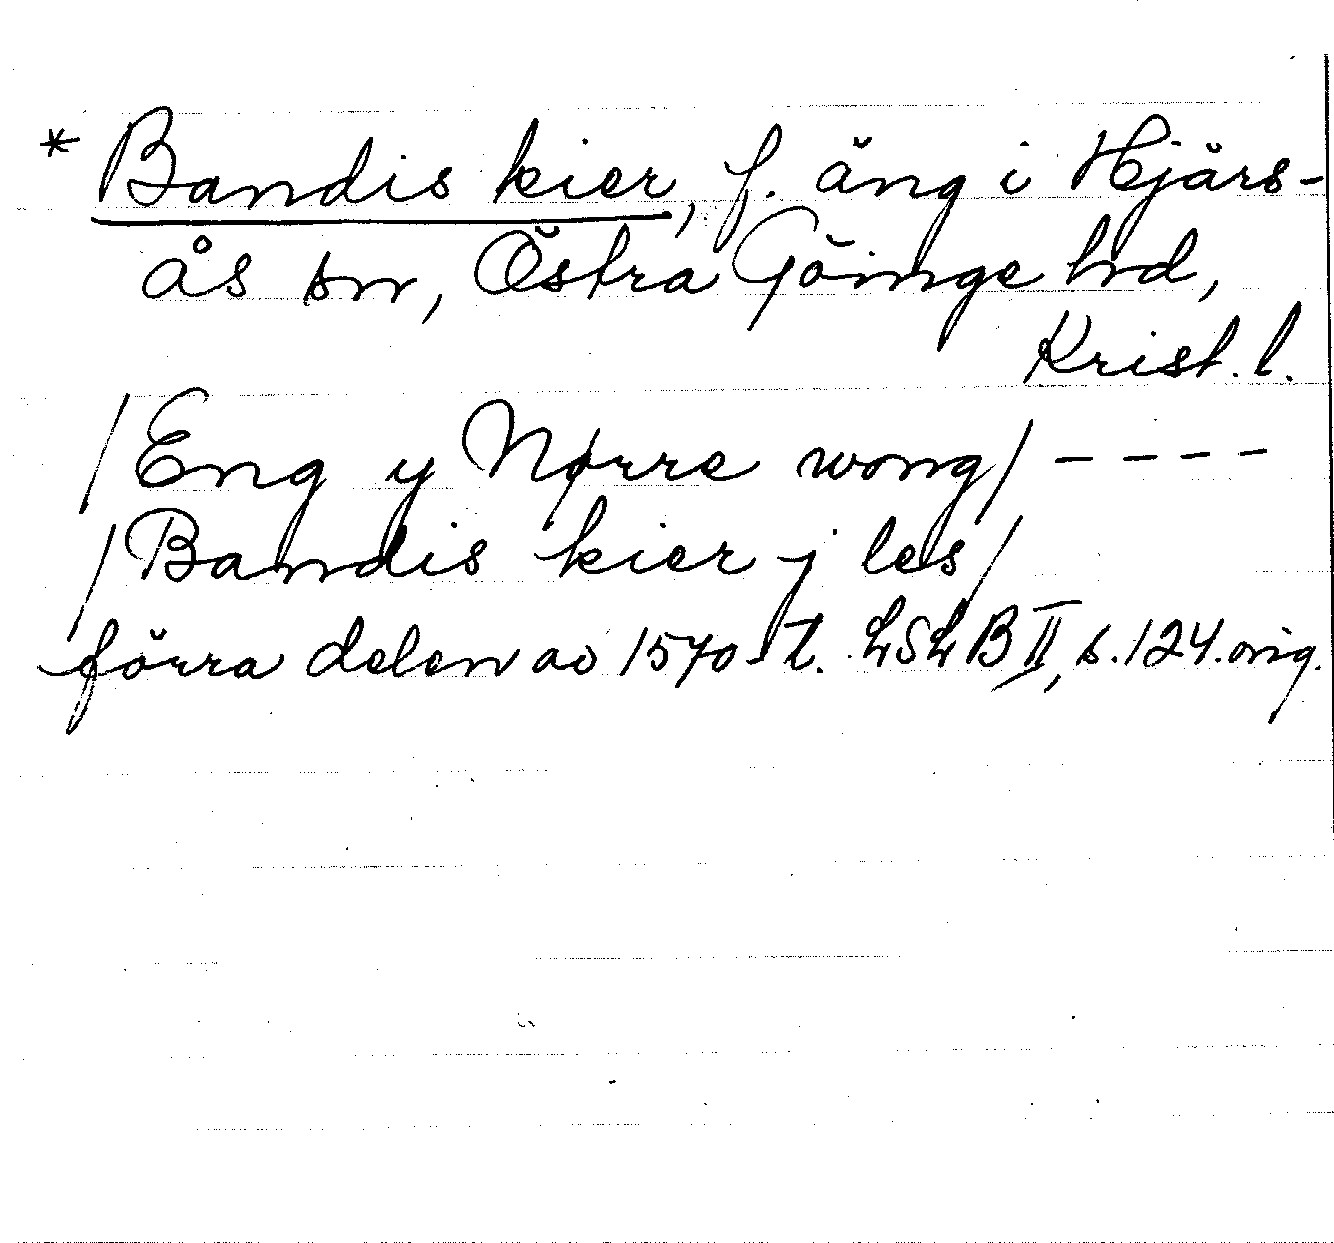 * Bandis kier, f. äng i Hjärs-
ås sn, Östra Göinge hd,
Krist. l.
/Eng y Nørre wong/ ----
/Bandis kier j les/
förra delen av 1570-t. LSLB II, s. 124. orig.